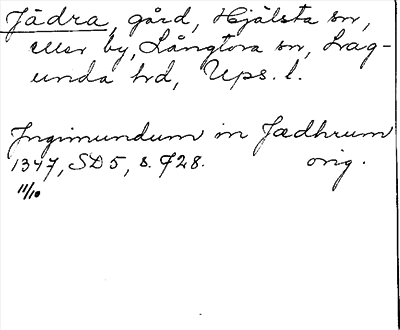 Jädra, gård, Hjälsta sn,
eller by, Långtora sn, Lag-
unda hd, Ups. l.
Ingimundum in Jædhrum
1347, SD5, s. 728. orig.
11/10